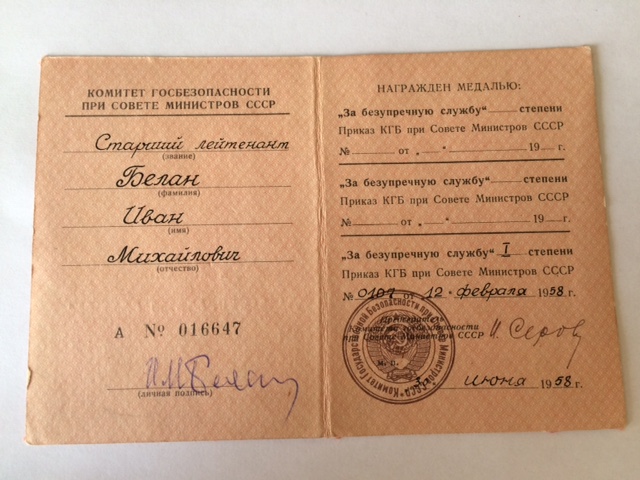 КОМИТЕТ ГОСБЕЗОПАСНОСТИ
ПРИ СОВЕТЕ МИНИСТРОВ СССР
Старший лейтенант
(звание)
Белан
(фамилия)
Иван
(имя)
Михайлович
(отчество)
А № 016647
(личная подпись)
НАГРАЖДЕН МЕДАЛЬЮ:
„За безупречную службу“ степени
Приказ КГБ при Совете Министров СССР
№ от „ “ 19 г.
„За безупречную службу“ степени
Приказ КГБ при Совете Министров СССР
№ от „ “ 19 г.
„За безупречную службу“ I степени
Приказ КГБ при Совете Министров СССР
№ 0107 от 12 февраля 1958 г.
Председатель
Комитета госбезопасности
при Совете Министров СССР И. Серов
М. П.
июня 1958 г.